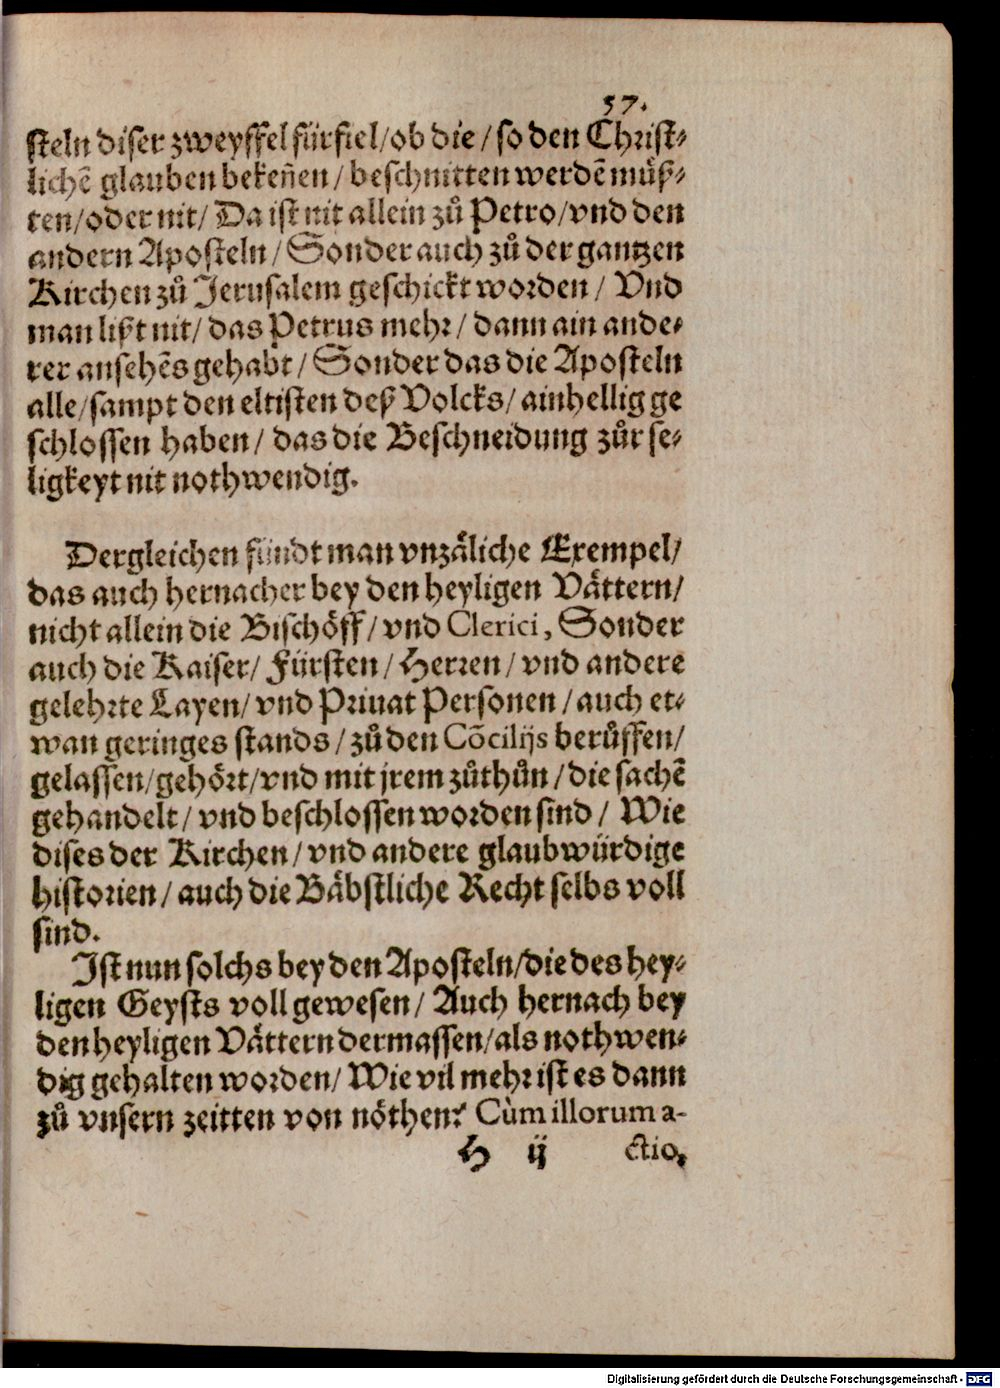 57.
steln diser zweyffel fürfiel/ob die/so den Christ-
lichẽ glauben bekeñen/ beschnitten werdẽ müß-
ten/oder nit/ Da ist nit allein zů Petro/vnd den
andern Aposteln/ Sonder auch zů der gantzen
Kirchen zů Jerusalem geschickt worden/ Vnd
man lißt nit/ das Petrus mehr/ dann ain ande-
rer ansehẽs gehabt/ Sonder das die Aposteln
alle/sampt den eltisten deß Volcks/ ainhellig ge
schlossen haben/ das die Beschneidung zůr se-
ligkeyt nit nothwendig.
Dergleichen fündt man vnzäliche Exempel/
das auch hernacher bey den heyligen Vättern/
nicht allein die Bischöff/ vnd Clerici, Sonder
auch die Kaiser/ Fürsten/ Herren/ vnd andere
gelehrte Layen/ vnd Priuat Personen/ auch et-
wan geringes stands/ zů den Cõcilijs berůffen/
gelassen/gehört/vnd mit jrem zůthůn/ die sachẽ
gehandelt/ vnd beschlossen worden sind/ Wie
dises der Kirchen/ vnd andere glaubwürdige
historien/ auch die Bäbstliche Recht selbs voll
sind.
Ist nun solchs bey den Aposteln/die des hey-
ligen Geysts voll gewesen/ Auch hernach bey
den heyligen Vättern dermassen/als nothwen-
dig gehalten worden/ Wie vil mehr ist es dann
zů vnsern zeitten von nöthen? Cùm illorum a-
H ij ctio,
Digitalisierung gefördert durch die Deutsche Forschungsgemeinschaft - DFG